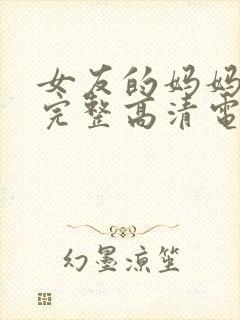 女友的妈妈
完整高清電
幻墨涼笙